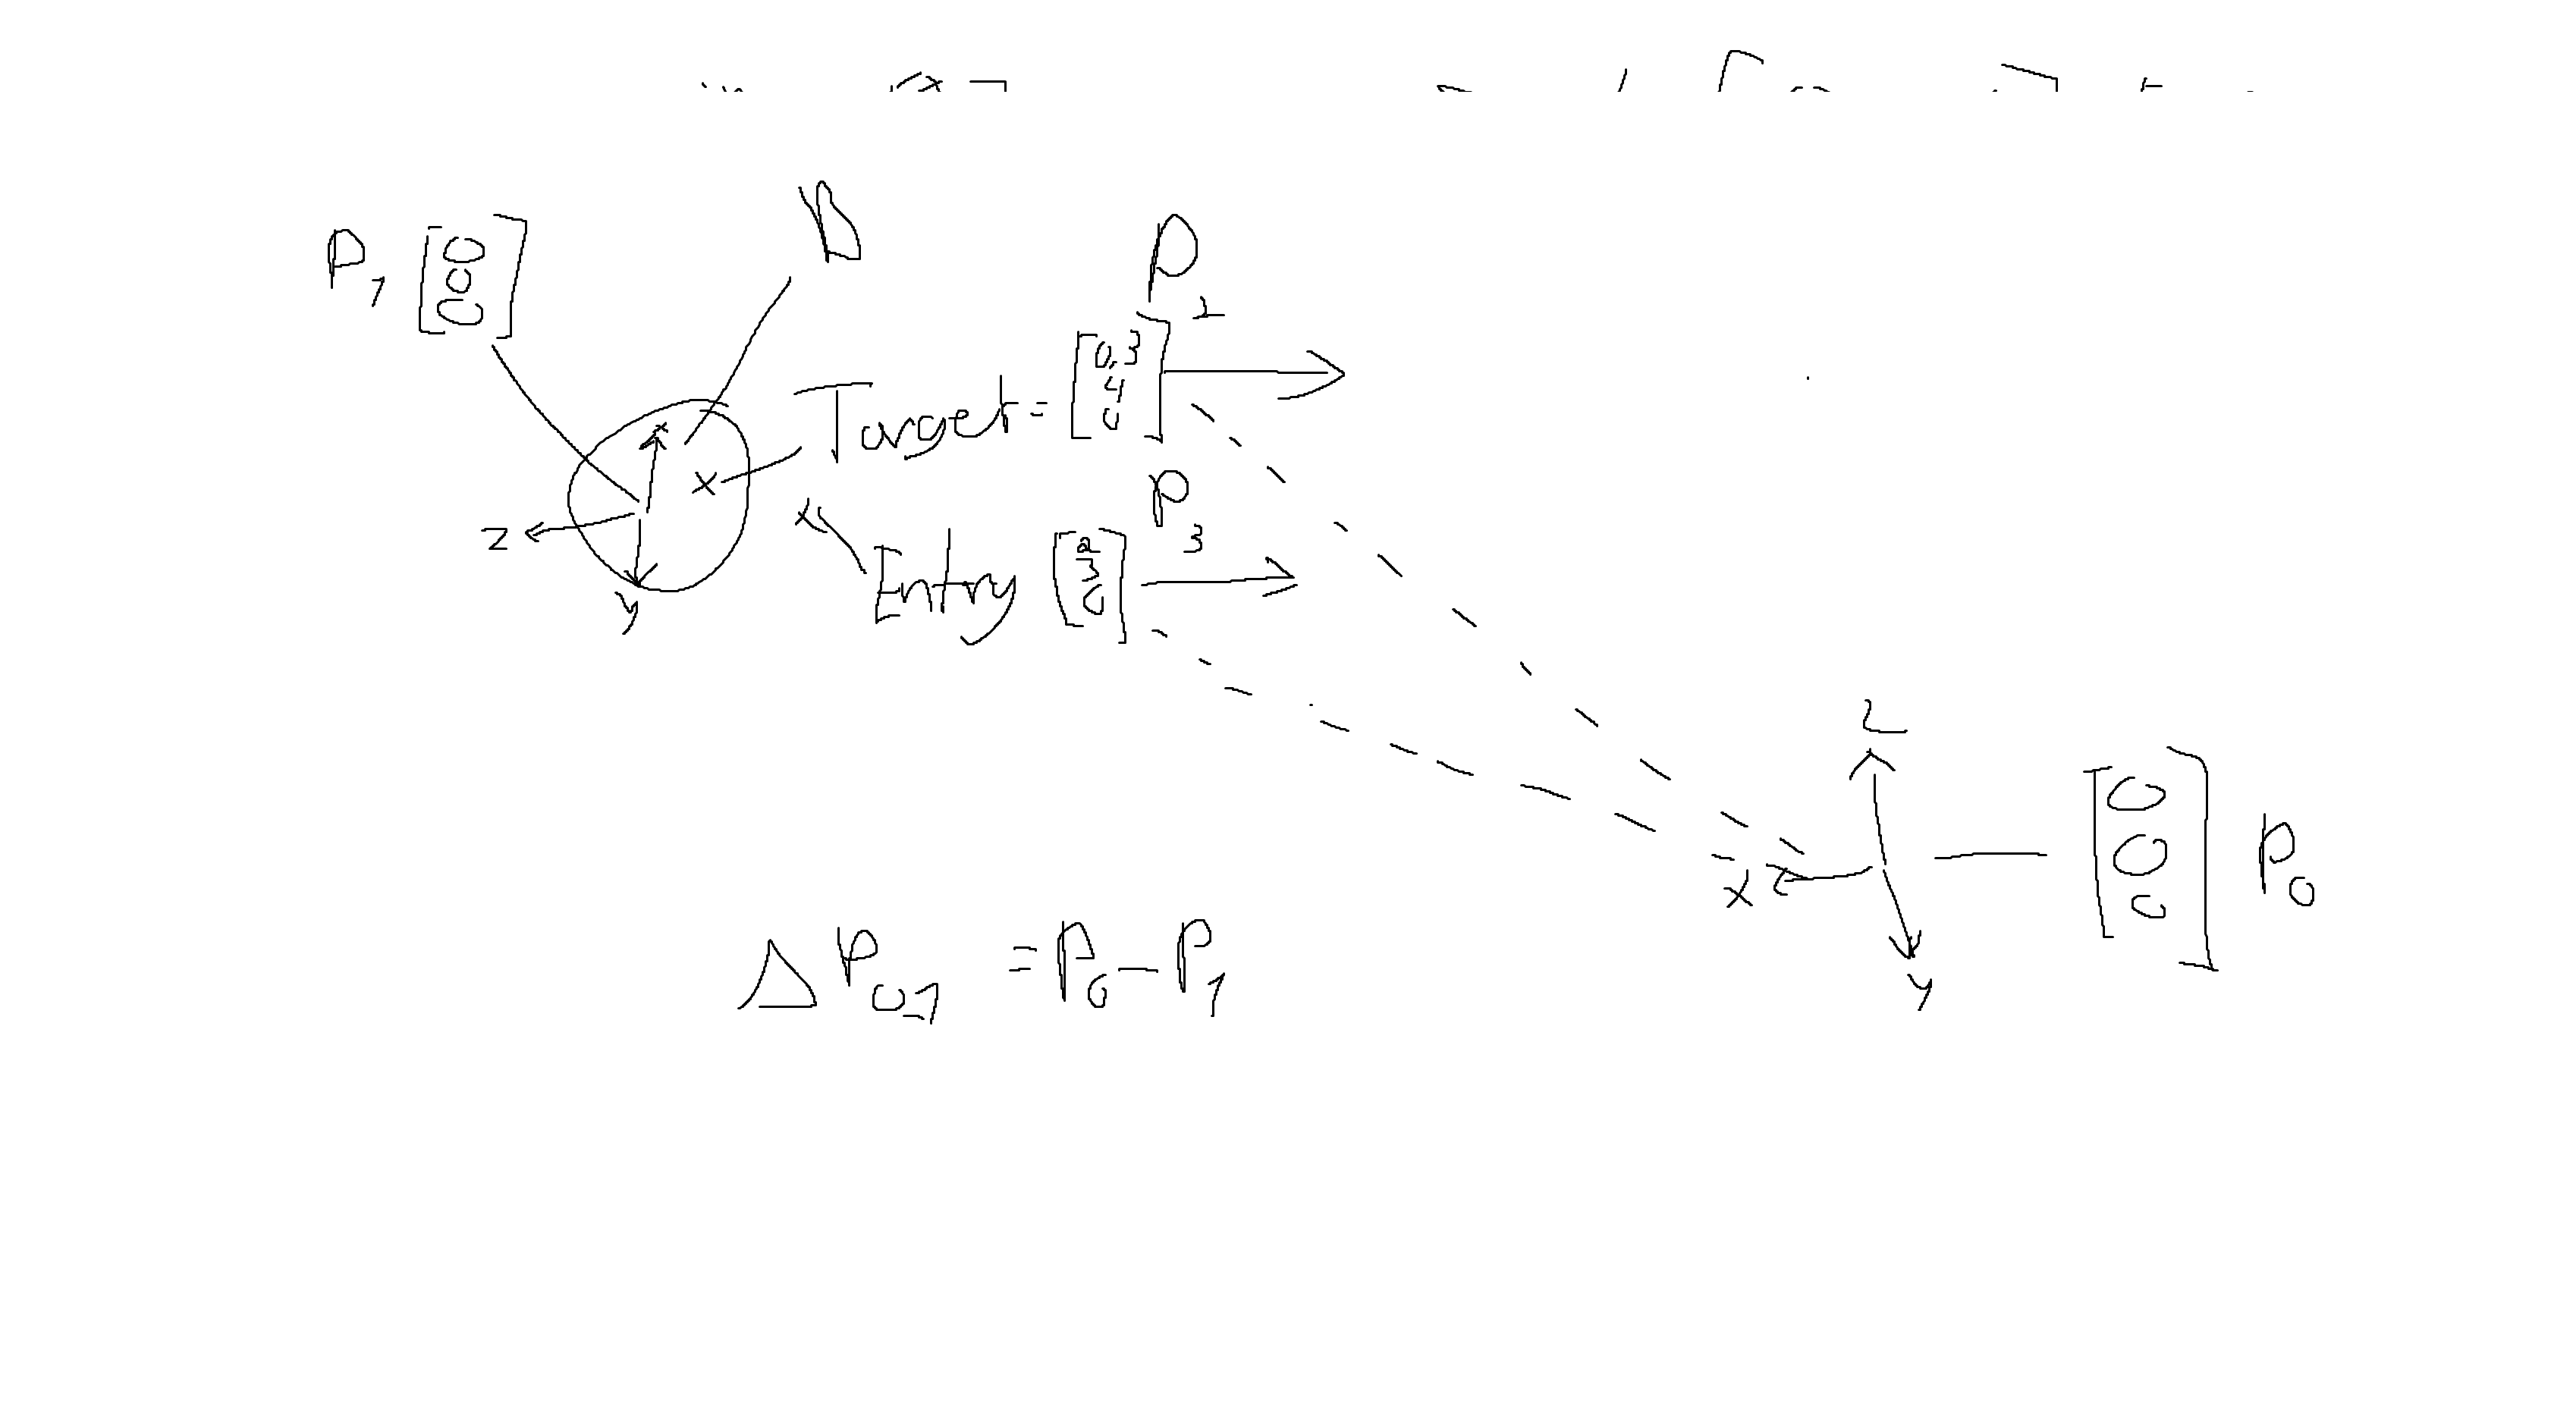 P₁ [0 0 0]
D
P₂
Target = [0,3 4 0]
P₃
Entry [2 3 0]
x
x
x
z
y
z
x
y
[0 0 0] P₀
ΔP₀₋₁ = P₀ - P₁